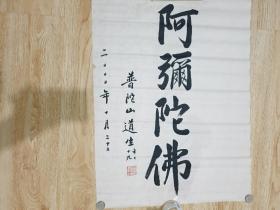 阿彌陀佛
普陀山道生
二〇〇〇年十月二十五